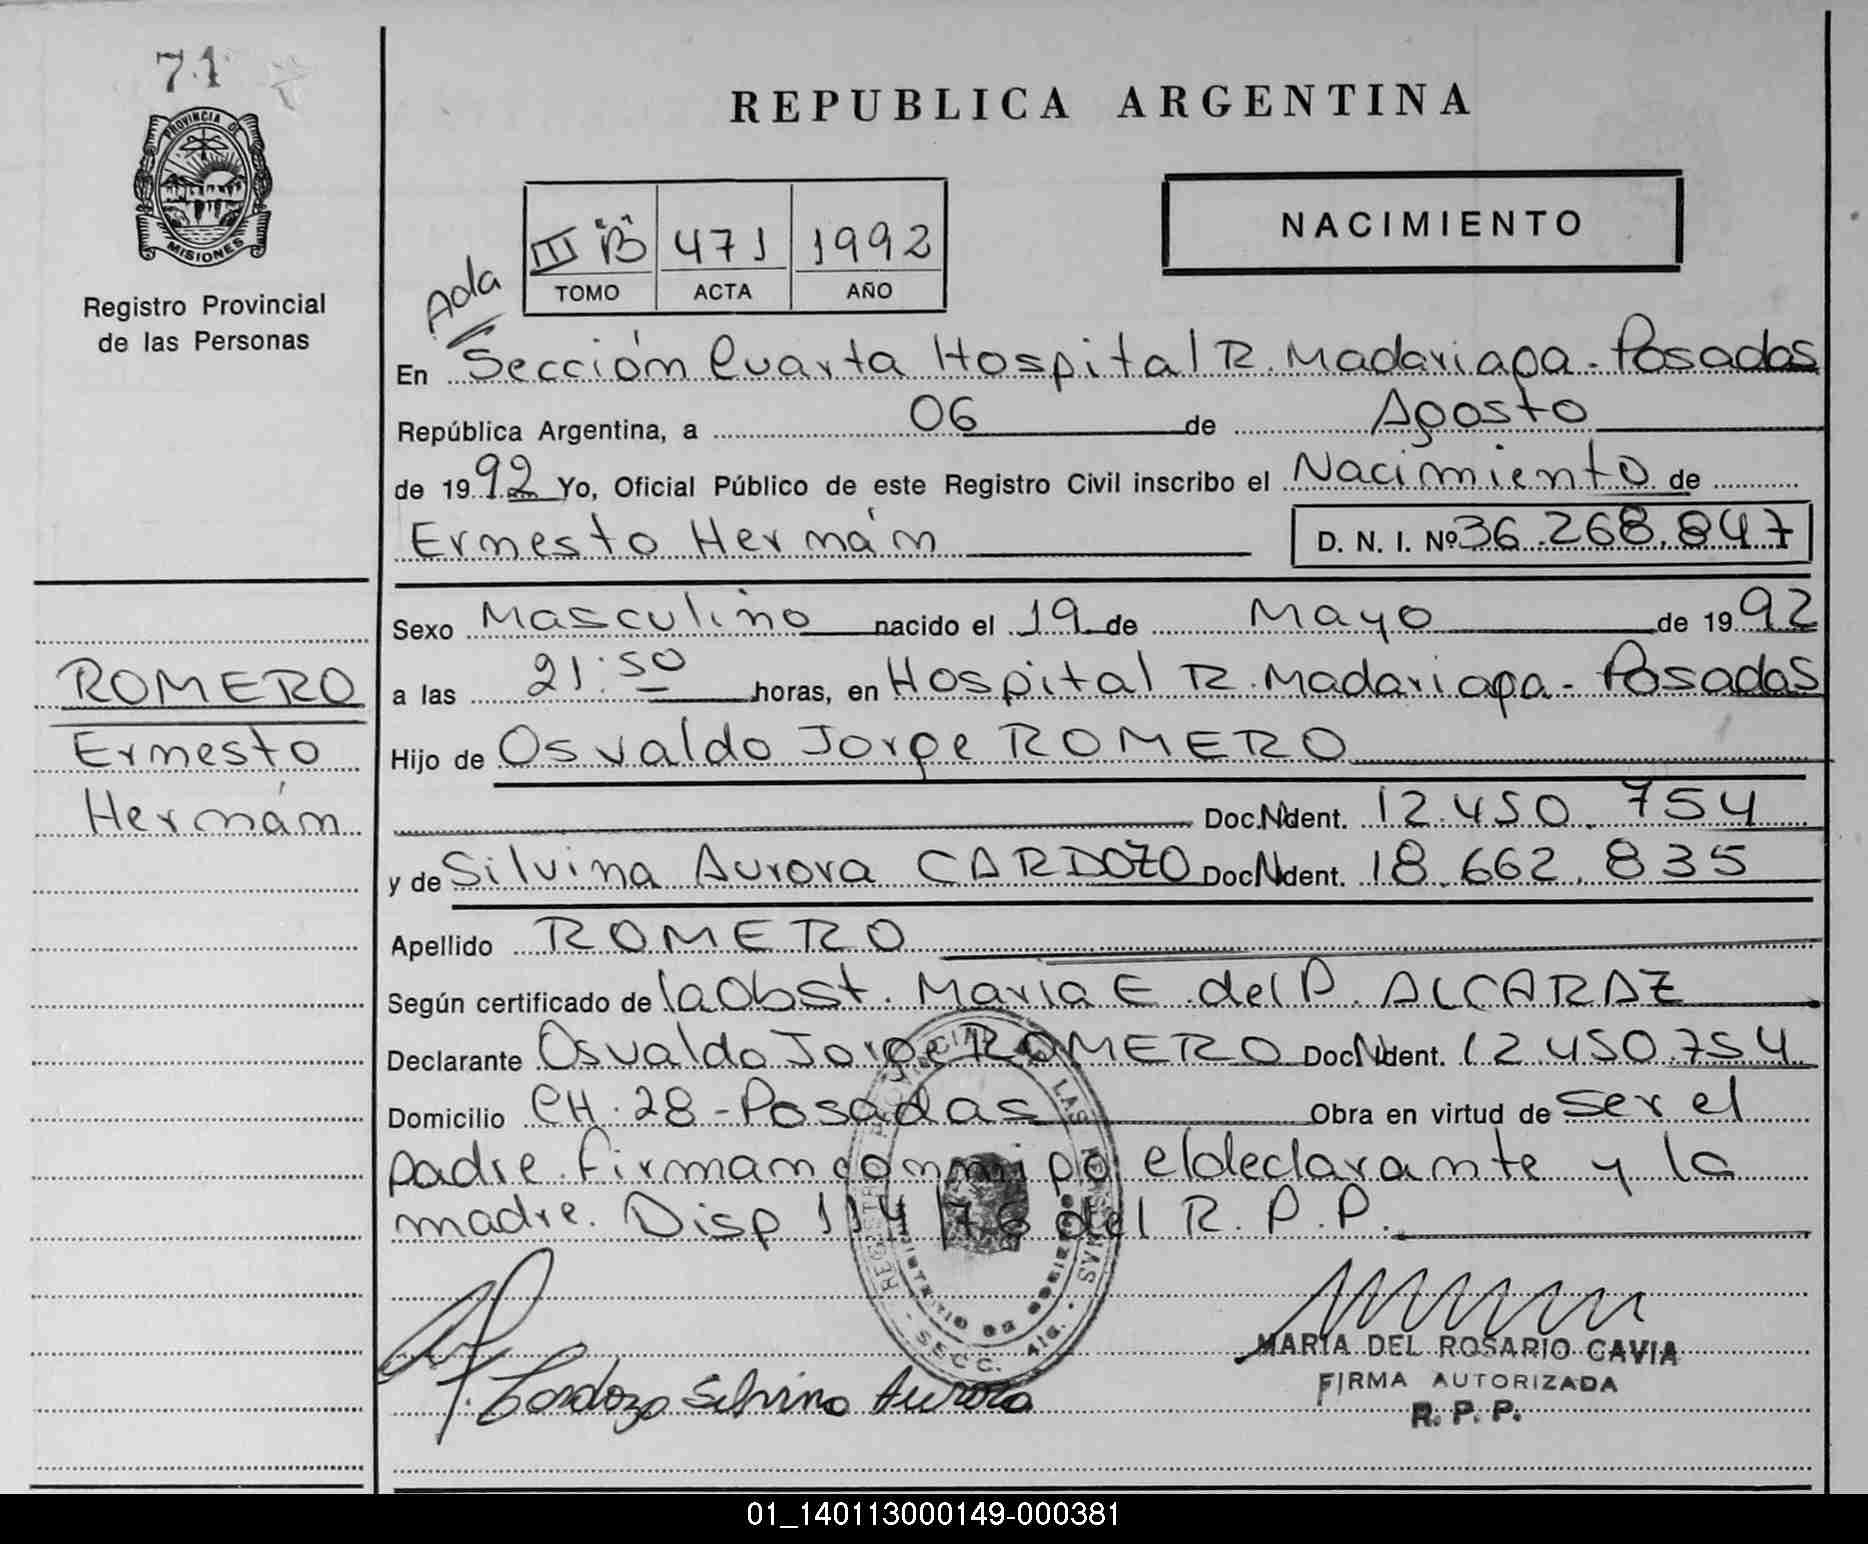 71
PROVINCIA DE
MISIONES
Registro Provincial
de las Personas
REPUBLICA ARGENTINA
NACIMIENTO
III "B" 471 1992
TOMO ACTA AÑO
Ada
En Sección Cuarta Hospital R. Madariaga - Posadas
República Argentina, a 06 de Agosto
de 1992 Yo, Oficial Público de este Registro Civil inscribo el Nacimiento de
Ernesto Hernán D. N. I. Nº 36.268.847
Sexo Masculino nacido el 19 de Mayo de 1992
a las 21:50 horas, en Hospital R. Madariaga - Posadas
Hijo de Osvaldo Jorge ROMERO
Doc. Nident. 12.450.754
y de Silvina Aurora CARDOZO Doc Nident. 18.662.835
Apellido ROMERO
Según certificado de la Obst. Maria E. del P. ALCARAZ
Declarante Osvaldo Jorge ROMERO Doc Nident. 12.450.754
Domicilio CH. 28 - Posadas Obra en virtud de ser el
padre. firman conmigo el declarante y la
madre. Disp 114/76 del R. P. P.
ROMERO
Ernesto
Hernán
SECC. 4ta.
Cardozo Silvina Aurora
MARIA DEL ROSARIO CAVIA
FIRMA AUTORIZADA
R. P. P.
01_140113000149-000381